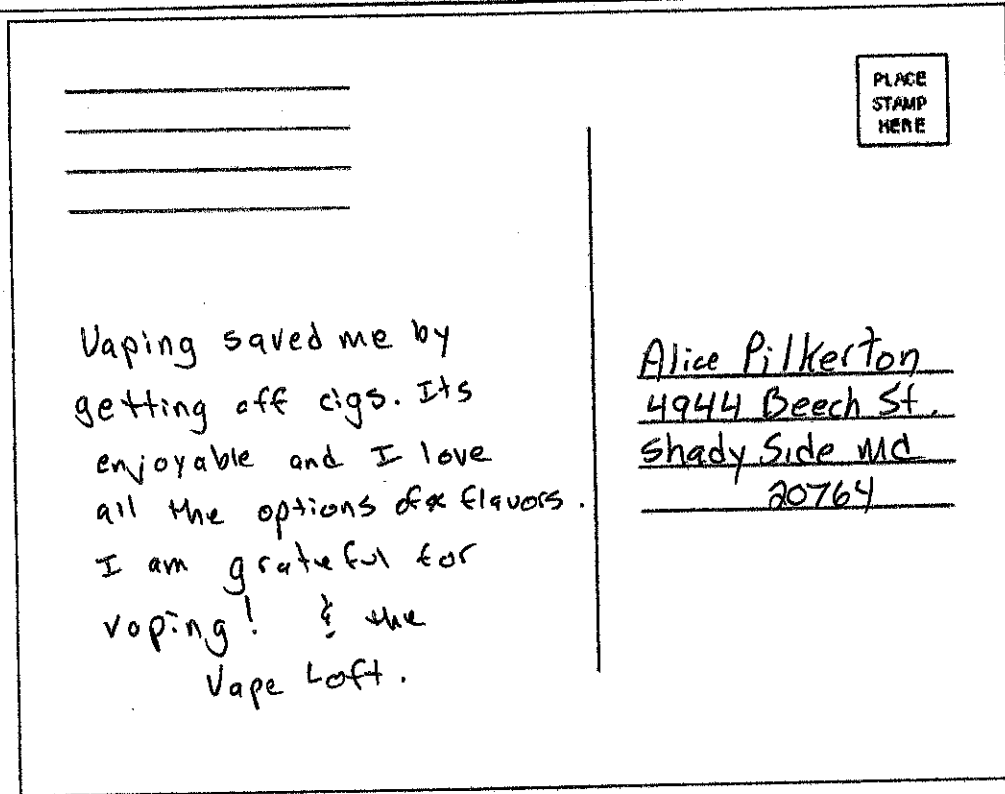 PLACE
STAMP
HERE
Vaping saved me by
getting off cigs. Its
enjoyable and I love
all the options of flavors.
I am grateful for
vaping! & the
Vape Loft.
Alice Pilkerton
4944 Beech St.
Shady Side Md
20764